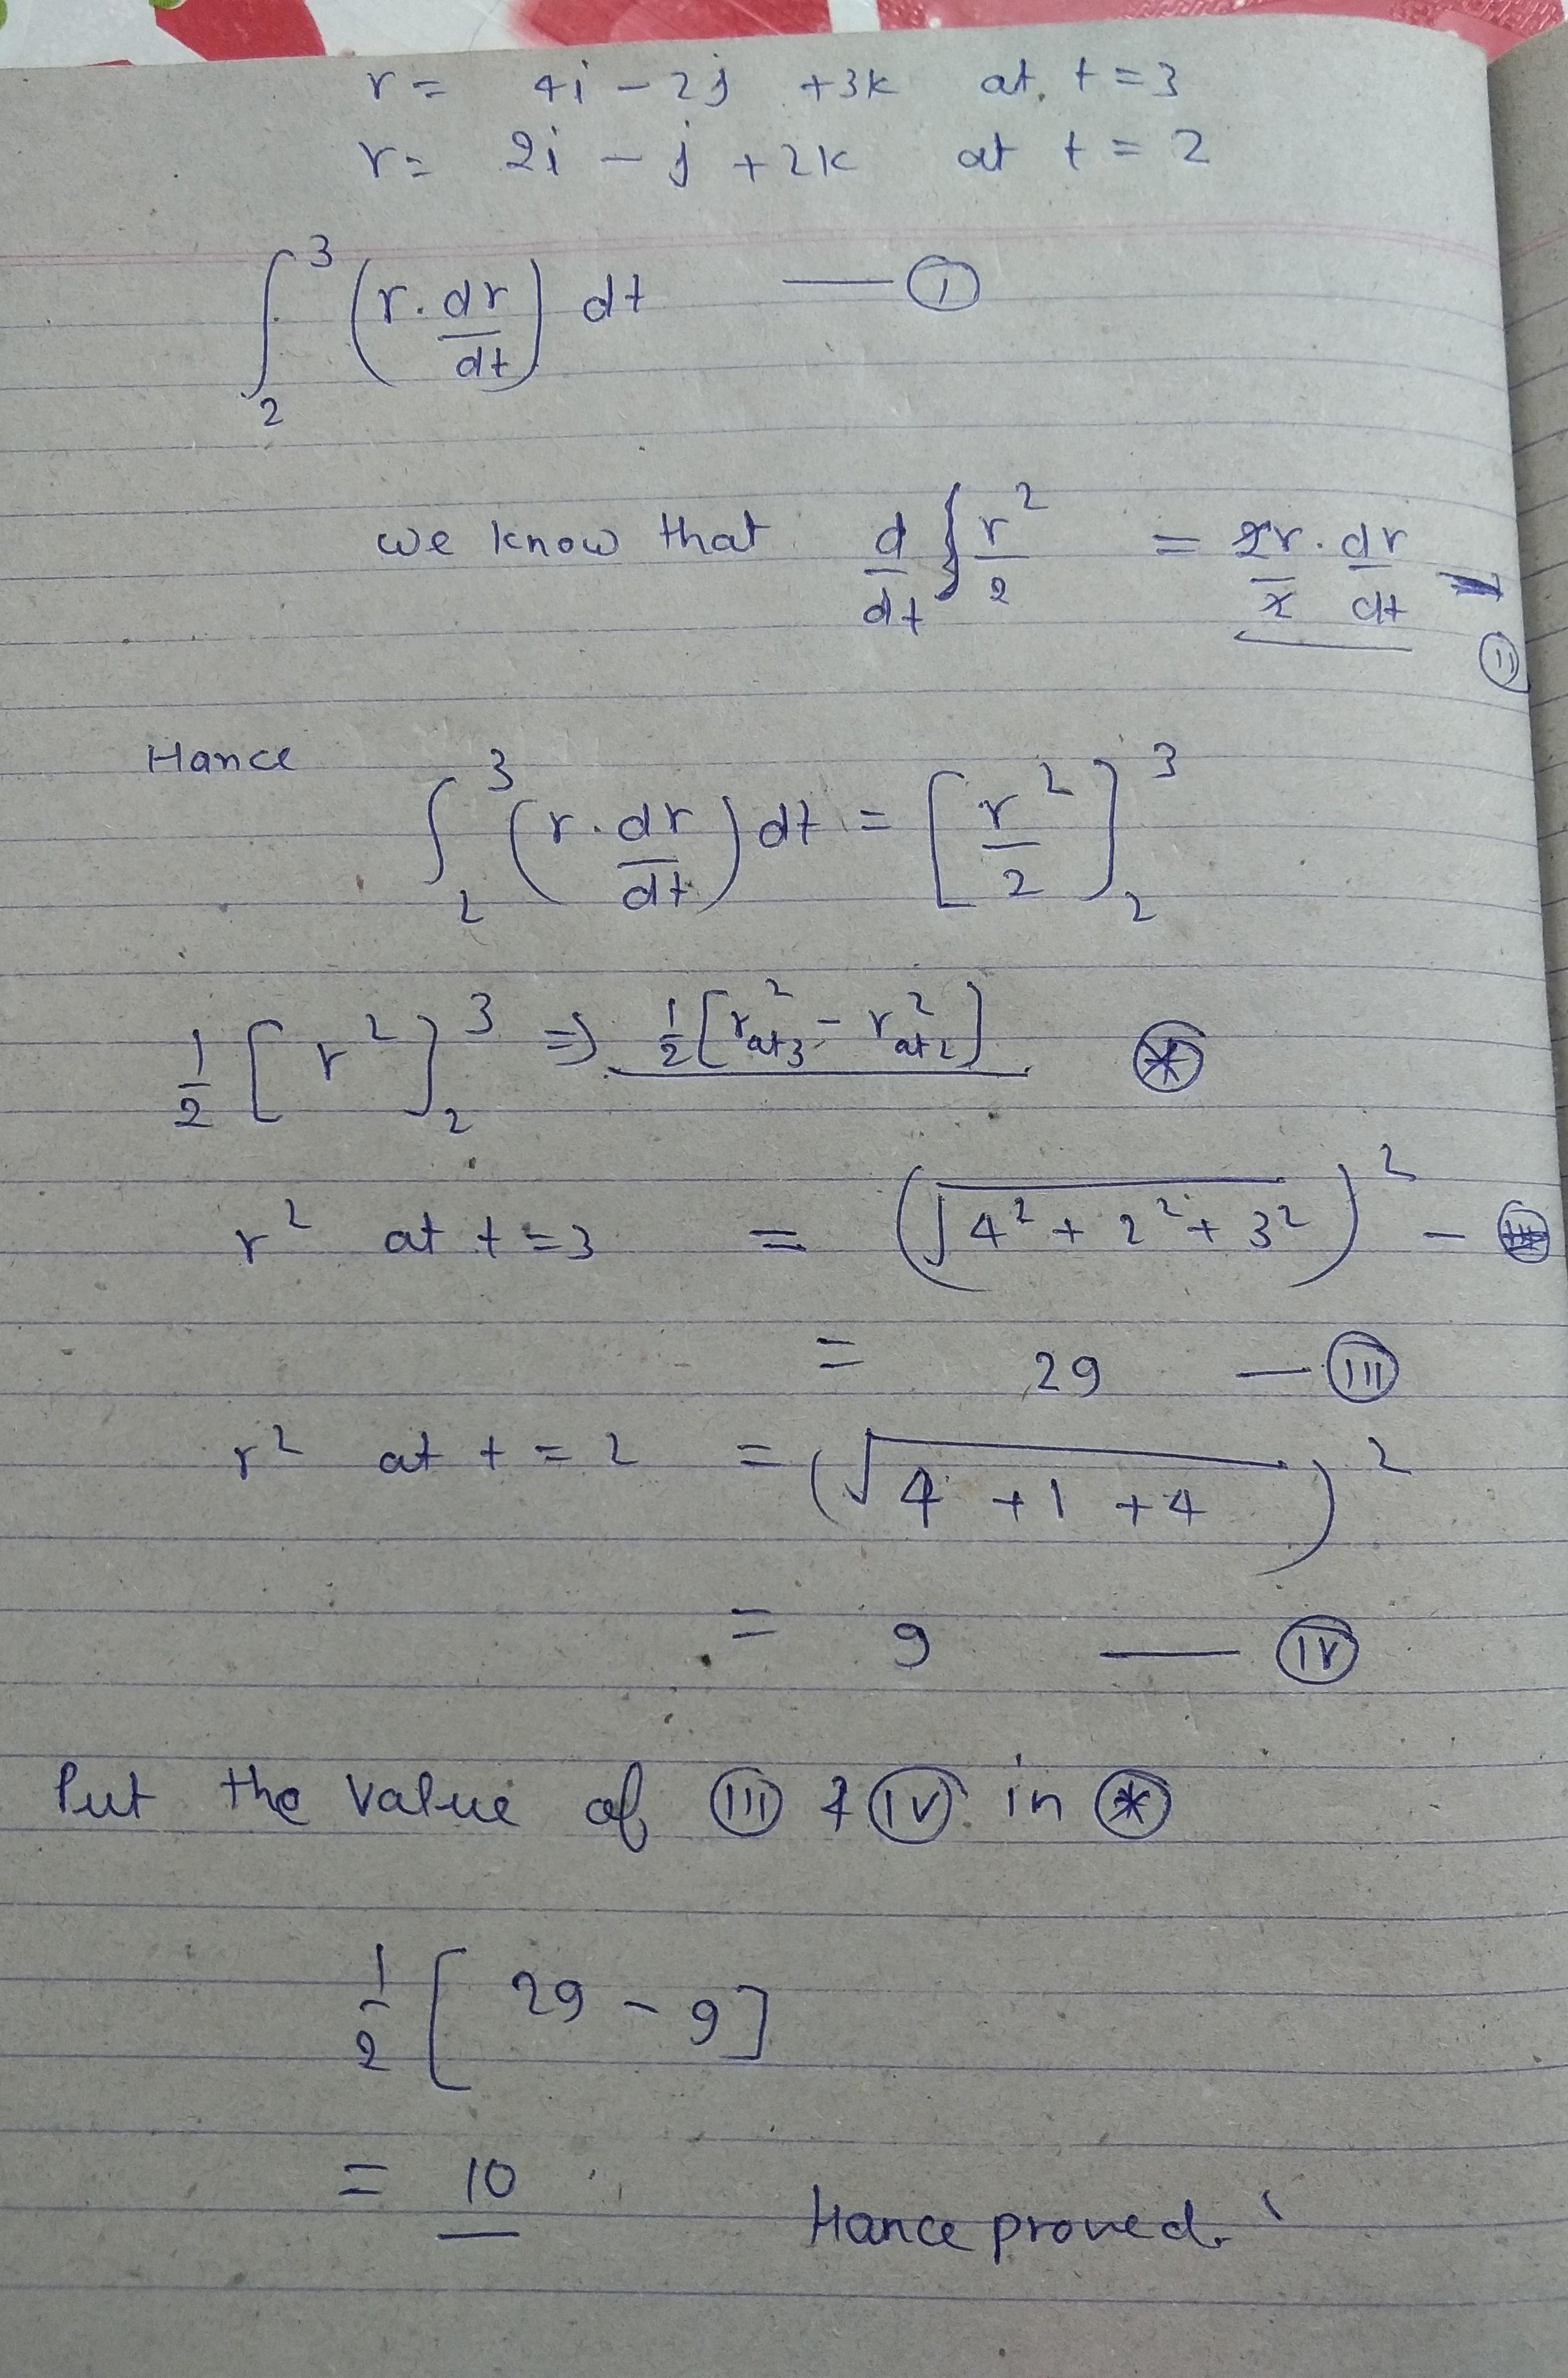 r = 4i - 2j + 3k at t = 3
r = 2i - j + 2k at t = 2
∫₂³ (r · dr/dt) dt — (I)
we know that d/dt { r²/2 = 2r/2 · dr/dt — (II)
Hance
∫₂³ (r · dr/dt) dt = [r²/2]₂³
1/2 [r²]₂³ ⇒ 1/2 [r² at 3 - r² at 2] (*)
r² at t = 3 = (√4² + 2² + 3²)² —
= 29 — (III)
r² at t = 2 = (√4 + 1 + 4)²
= 9 — (IV)
Put the value of (III) & (IV) in (*)
1/2 [29 - 9]
= 10 Hance proved.